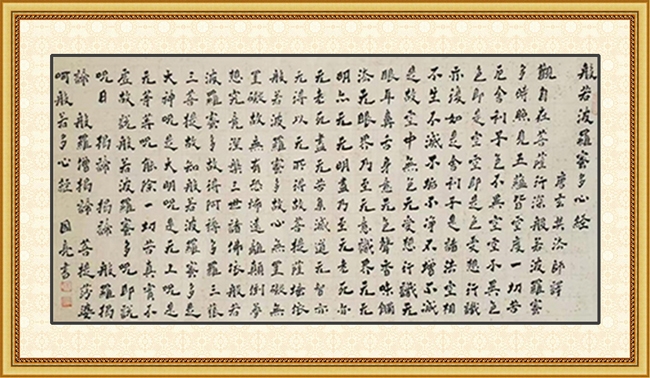 般若波羅蜜多心經
唐玄奘法師譯
觀自在菩薩行深般若波羅蜜
多時照見五蘊皆空度一切苦
厄舍利子色不異空空不異色
色即是空空即是色受想行識
亦復如是舍利子是諸法空相
不生不滅不垢不淨不增不減
是故空中無色无受想行識无
眼耳鼻舌身意无色聲香味觸
法无眼界乃至无意識界无无
明亦无无明盡乃至无老死亦
无老死盡无苦集滅道无智亦
无得以无所得故菩提薩埵依
般若波羅蜜多故心无罣礙無
罣礙故無有恐怖遠離顛倒夢
想究竟涅槃三世諸佛依般若
波羅蜜多故得阿耨多羅三藐
三菩提故知般若波羅蜜多是
大神咒是大明咒是无上咒是
无等等咒能除一切苦真實不
虛故說般若波羅蜜多咒即說
咒曰 揭諦 揭諦 般羅揭
諦 般羅僧揭諦 菩提莎婆
呵般若多心經 書